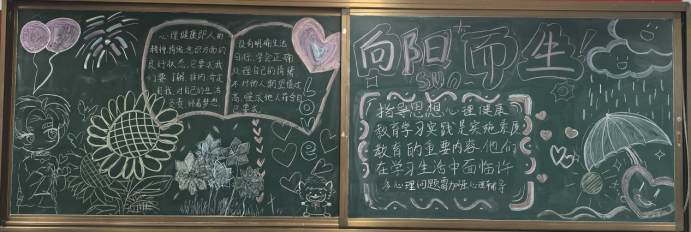 心理健康即人的
精神、情绪、意识方面的
良好状态。它要求我
们要了解、接纳、肯定
自我，对自己的生活
负责，怀着梦想
没有明确生活
目标，学会正确
处理自己的情绪
不对他人期望值过
高
love
向阳而生!
SUN
指导思想心理健康
教育学习实践是实施素质
教育的重要内容。他们
在学习生活中面临许
多心理问题需加强心理辅导